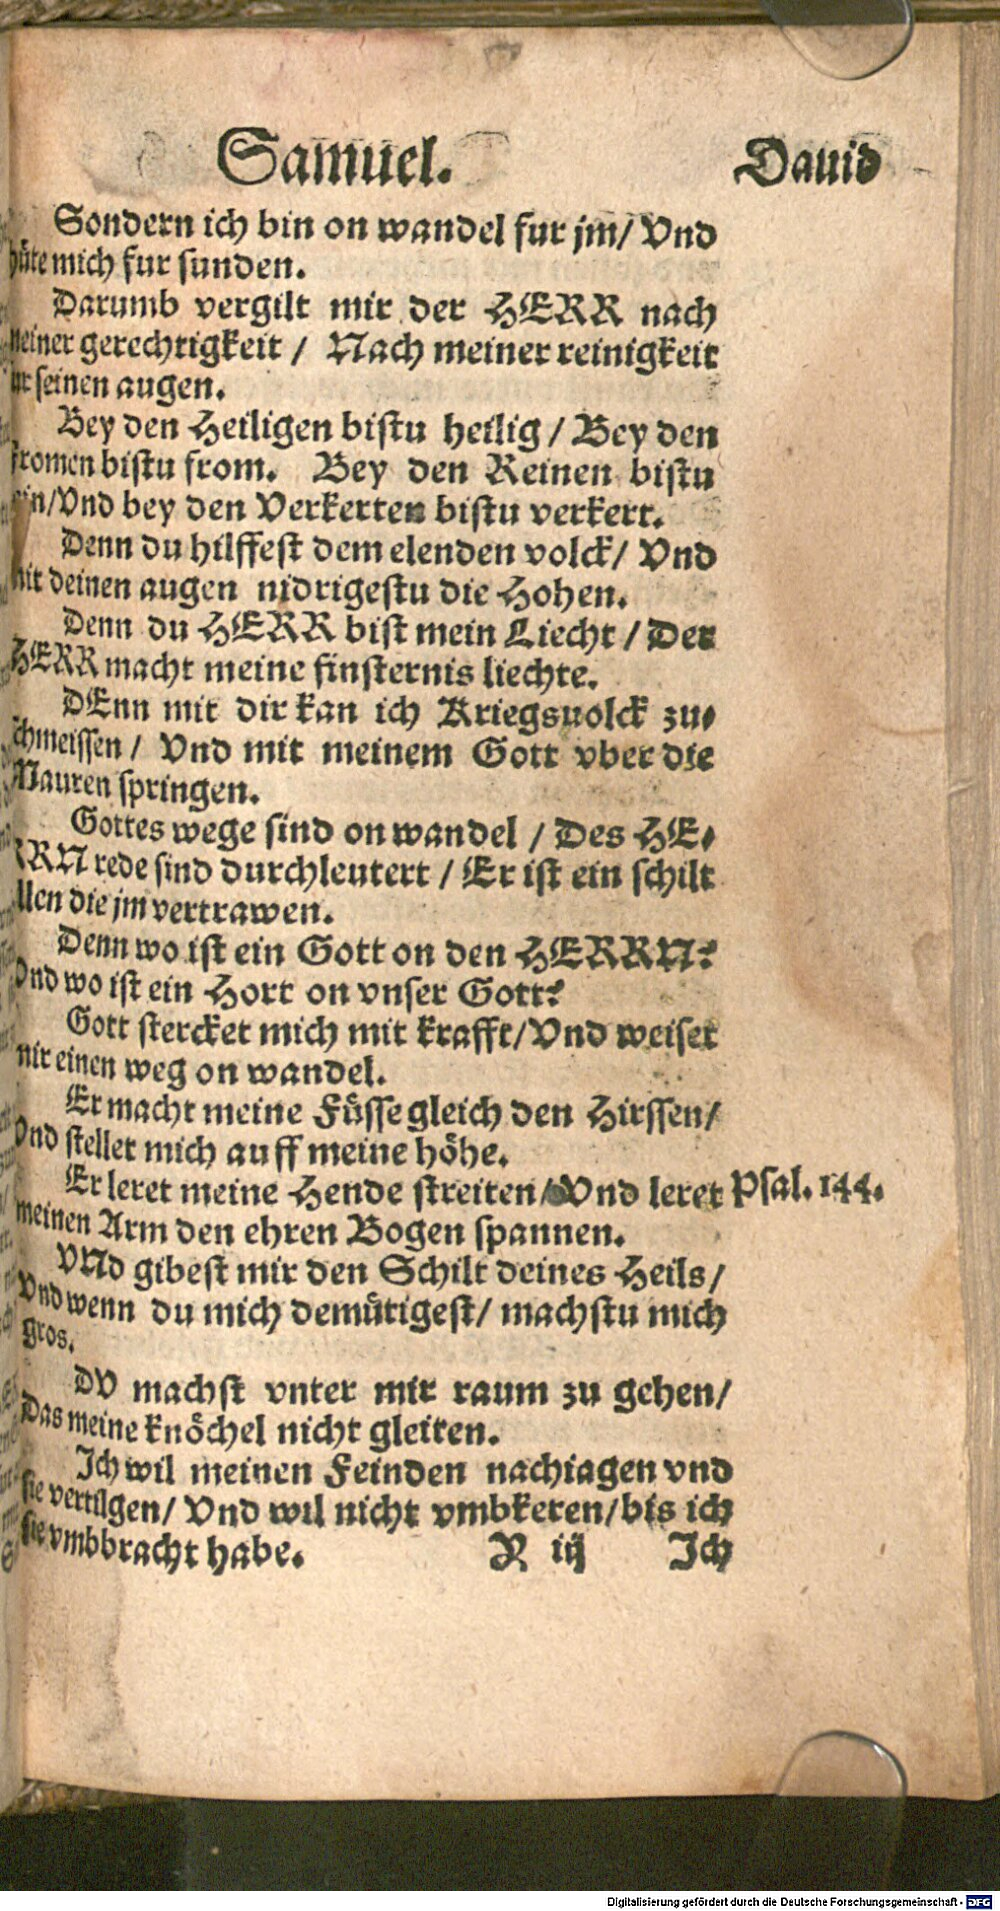 Samuel. Dauid
Sondern ich bin on wandel fur jm/ Vnd
hüte mich fur sunden.
Darumb vergilt mir der HERR nach
meiner gerechtigkeit / Nach meiner reinigkeit
seinen augen.
Bey den Heiligen bistu heilig / Bey den
fromen bistu from. Bey den Reinen bistu
Vnd bey den Verkerten bistu verkert.
Denn du hilffest dem elenden volck/ Vnd
mit deinen augen nidrigestu die Hohen.
Denn du HERR bist mein Liecht / Der
HERR macht meine finsternis liechte.
DEnn mit dir kan ich Kriegsuolck zu⸗
schmeissen / Vnd mit meinem Gott vber die
Mauren springen.
Gottes wege sind on wandel / Des HE⸗
RRN rede sind durchleutert / Er ist ein schilt
allen die jm vertrawen.
Denn wo ist ein Gott on den HERRN?
Vnd wo ist ein Hort on vnser Gott?
Gott stercket mich mit krafft/ Vnd weiset
mir einen weg on wandel.
Er macht meine Füsse gleich den Hirssen/
Vnd stellet mich auff meine höhe.
Er leret meine Hende streiten/ Vnd leret Psal. 144.
meinen Arm den ehren Bogen spannen.
VNd gibest mir den Schilt deines Heils/
Vnd wenn du mich demütigest/ machstu mich
gros.
DV machst vnter mir raum zu gehen/
Das meine knöchel nicht gleiten.
Ich wil meinen Feinden nachiagen vnd
sie vertilgen/ Vnd wil nicht vmbkeren/ bis ich
sie vmbbracht habe. R iij Ich
Digitalisierung gefördert durch die Deutsche Forschungsgemeinschaft - DFG